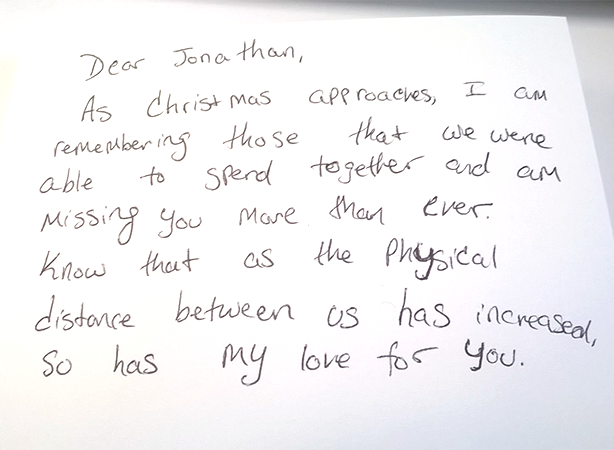 Dear Jonathan,
As Christmas approaches, I am
remembering those that we were
able to spend together and am
missing you more than ever.
Know that as the physical
distance between us has increased,
so has my love for you.